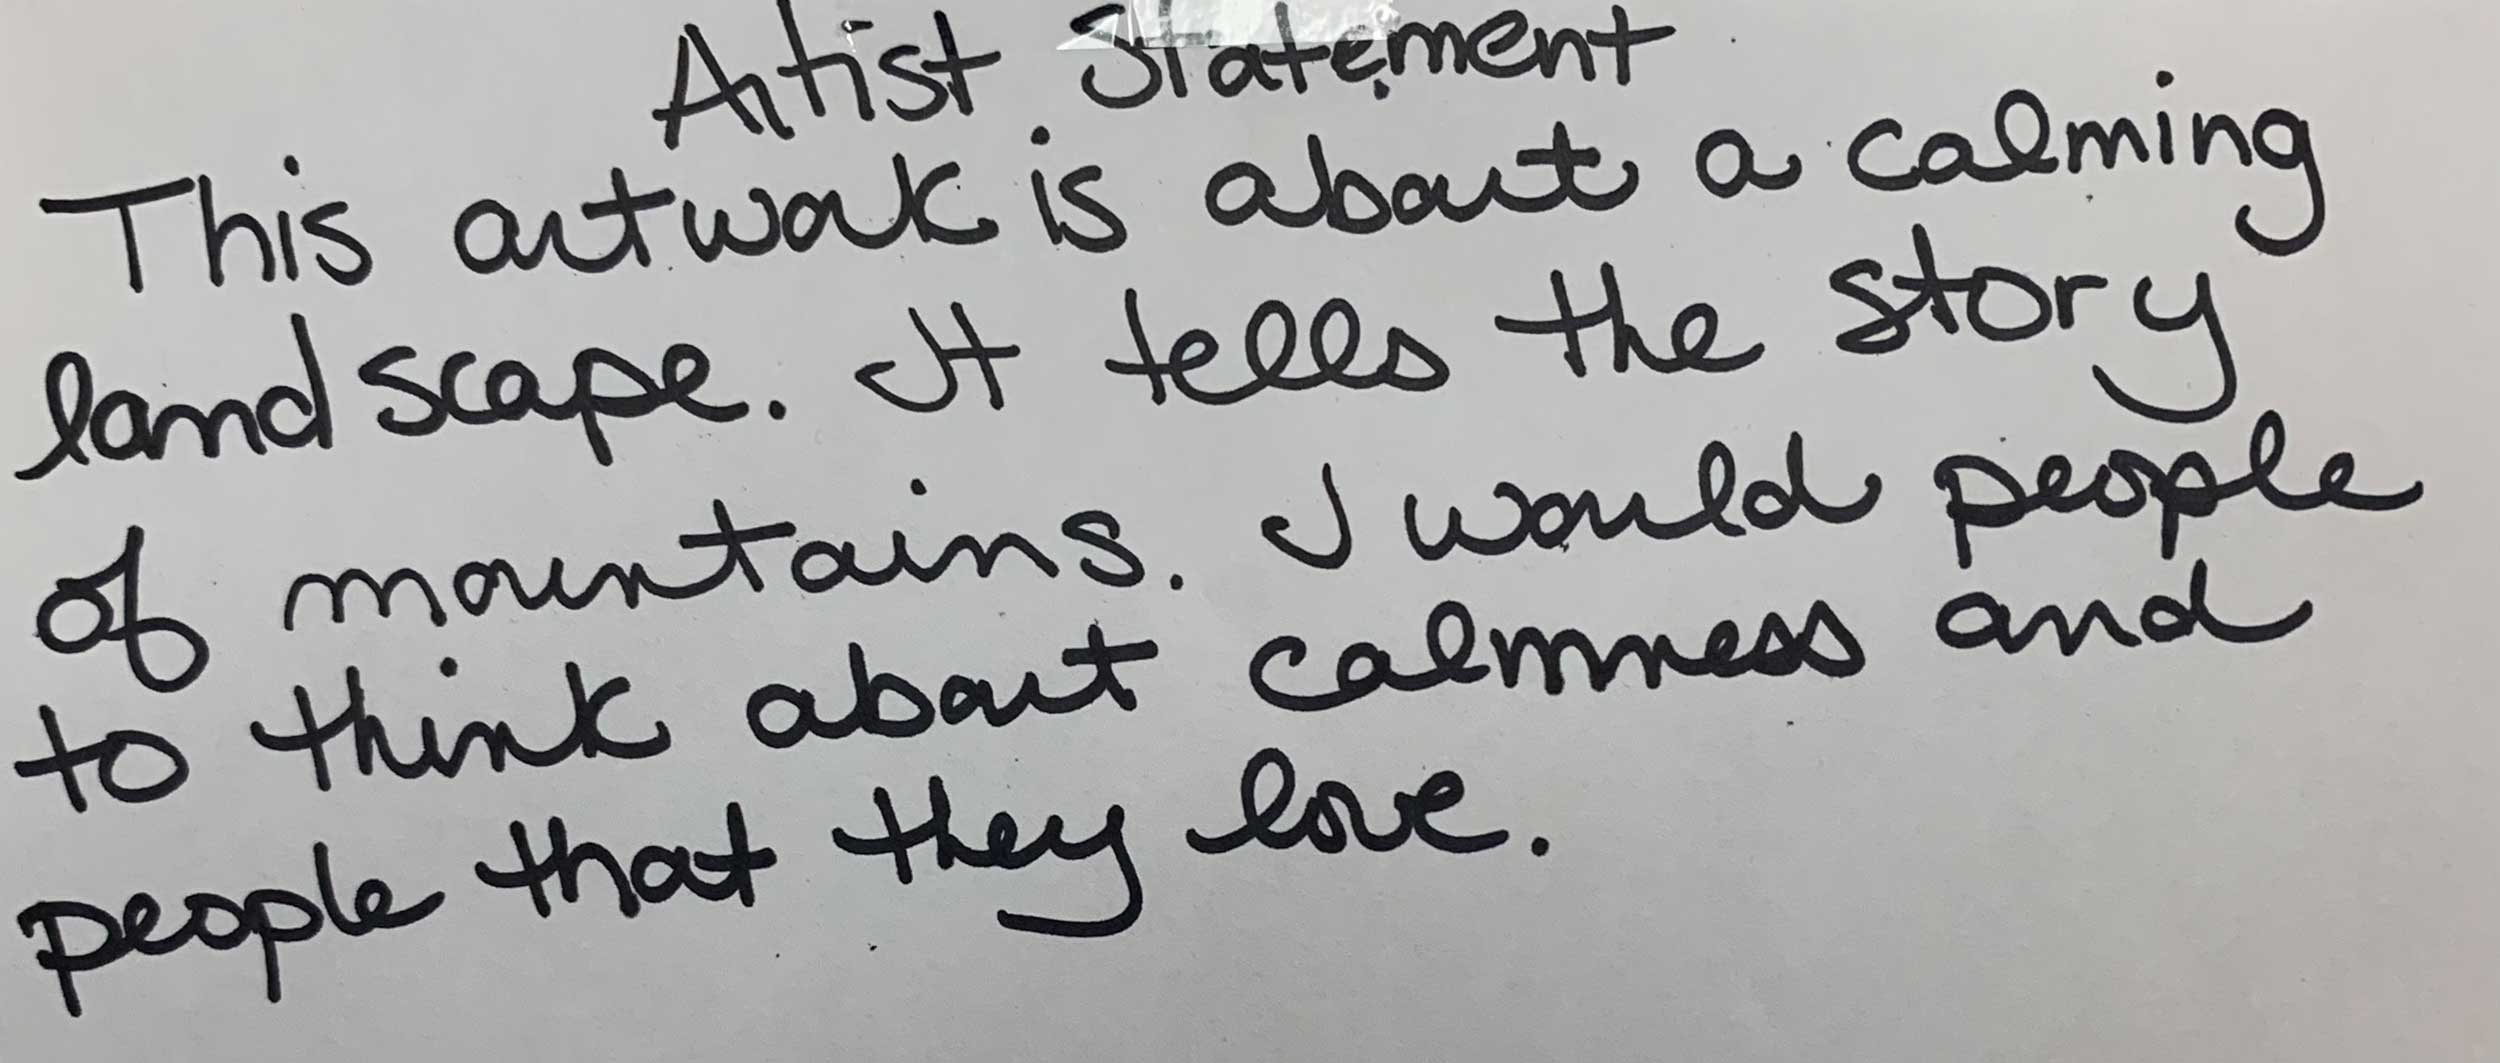 Artist Statement
This artwork is about a calming
landscape. It tells the story
of mountains. I would people
to think about calmness and
people that they love.